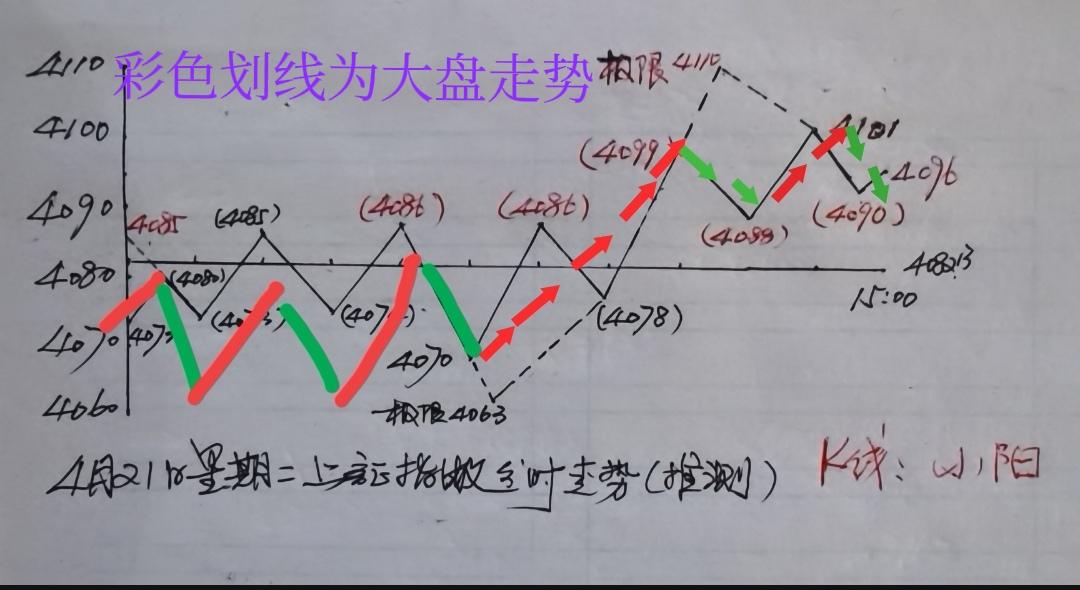 4110 彩色划线为大盘走势 极限 4110
4100 (4099) 4101
4090 4085 (4085) (4086) (4086) (4088) (4090) 4096
4080 (4080)
15:00
4070 4070 (4078)
4060 极限4063
4月21日星期二上证指数全时走势(推测) K线:小阳